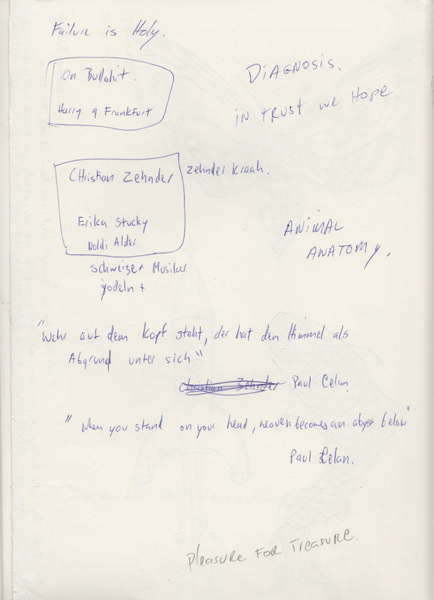 Failure is Holy.
On Bullshit.
Harry G Frankfurt
DIAGNOSIS.
IN TRUST WE HOPE
Christian Zehnder Zehnder Kraah.
Erika Stucky
Noldi Alder
schweizer Musiker
yodeln +
ANIMAL
ANATOMY,
"Wehr auf dem Kopf steht, der hat den Himmel als
Abgrund unter sich"
Christian Zehnder Paul Celan
"When you stand on your head, heaven becomes an abyss below"
Paul Celan.
Pleasure FOR Treasure.